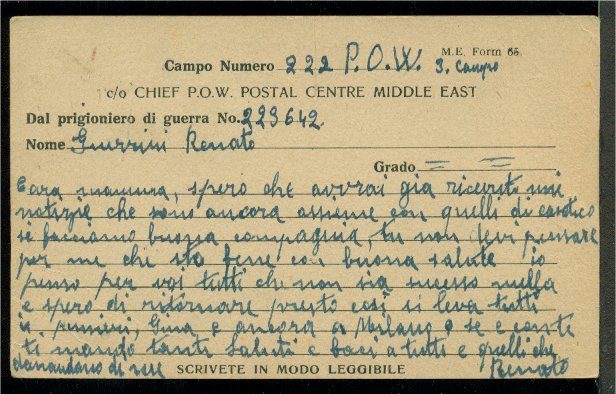 M.E. Form 65.
Campo Numero 222 P.O.W. 3. Campo
c/o CHIEF P.O.W. POSTAL CENTRE MIDDLE EAST
Dal prigioniero di guerra No. 223642
Nome Renato
Grado = =
Cara mamma, spero che avrai già ricevuto mie
notizie che sono ancora assieme con quelli di
si facciamo buona compagnia, tu non devi pensare
per me che sto bene con buona salute io
penso per voi tutti che non sia sucesso nulla
e spero di ritornare presto così si leva tutti
i pensieri, Gina e ancora a Milano o se e
ti mando tanti saluti e baci a tutti e quelli che
domandano di me Renato
SCRIVETE IN MODO LEGGIBILE